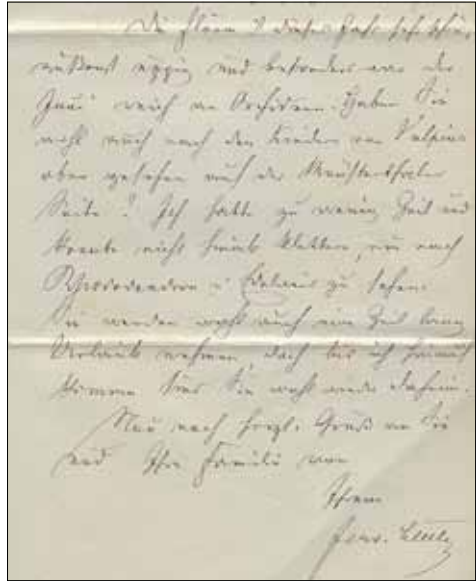 Die Flora ist dieses Jahr sehr schön,
äußerst üppig und besonders war der
Juni reich an Orchideen. Haben Sie
wohl auch nach den Kindern von Vulpius
oben gesehen auf der Münsterthaler
Seite? Ich hatte zu wenig Zeit und
konnte nicht hinab klettern, um nach
Rhododendron u. Edelweis zu sehen.
Sie werden wohl auch eine Zeit lang
Urlaub nehmen doch bis ich
komme sind Sie wohl wieder daheim.
Nun noch herzl. Gruß an Sie
und Ihre Familie von
Ihrem